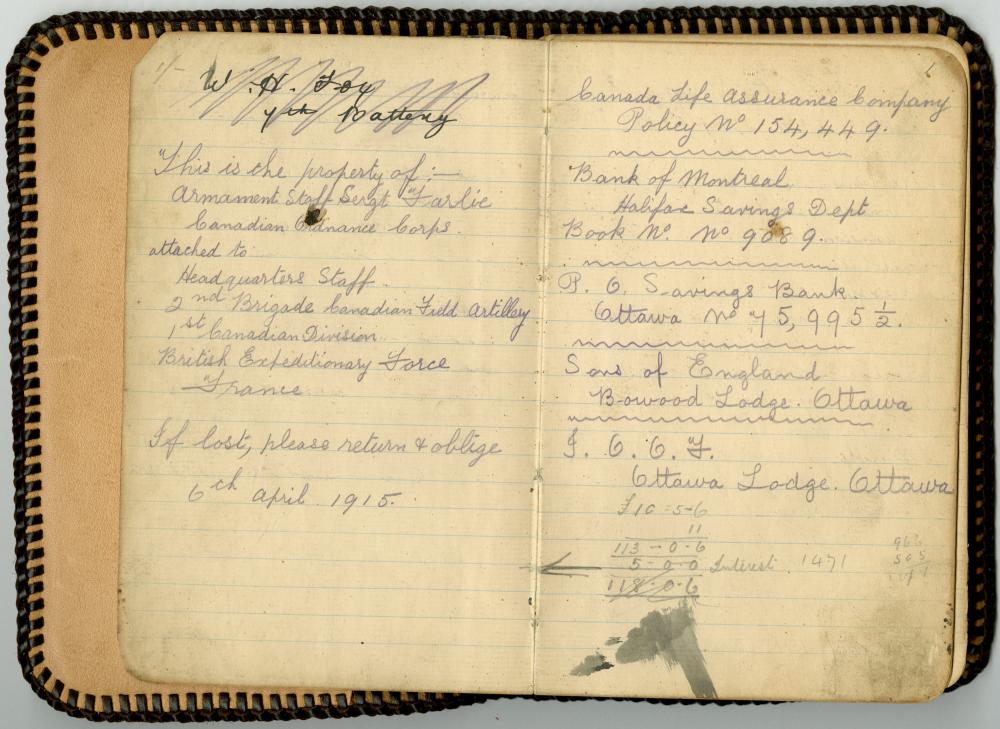 1/-
W. H. Foy
7th Battery
"This is the property of :—
Armament Staff Sergt Farlie
Canadian Ordnance Corps.
attached to
Headquarters Staff.
2nd Brigade Canadian Field Artillery
1st Canadian Division
British Expeditionary Force
France
If lost, please return & oblige
6th April. 1915.
Canada Life Assurance Company
Policy No 154,449.
Bank of Montreal
Halifax Savings Dept
Book No. No 9089.
P. O. Savings Bank.
Ottawa No 75,995 1/2.
Sons of England
Bowood Lodge. Ottawa
I. O. O. F.
Ottawa Lodge. Ottawa
£10 = 5-6
11
113 - 0 - 6
5 - 0 - 0 Interest 1471
118 - 0 - 6